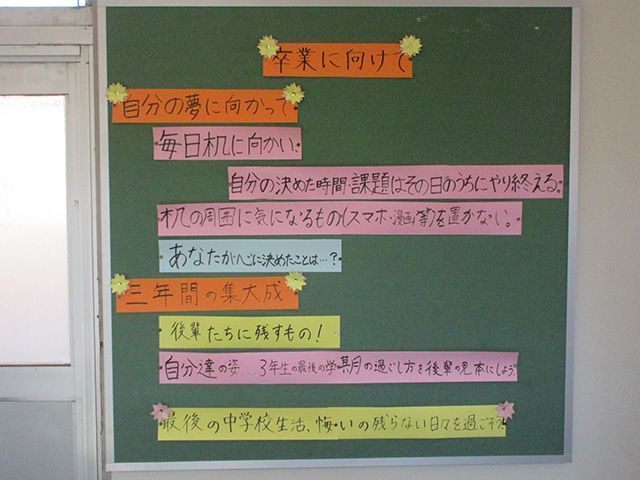 卒業に向けて
自分の夢に向かって
毎日机に向かい、
自分の決めた時間・課題はその日のうちにやり終える。
机の周囲に気になるもの(スマホ・漫画等)を置かない。
あなたが心に決めたことは…?
三年間の集大成
後輩たちに残すもの!
自分達の姿…3年生の最後の学期の過ごし方を後輩の見本にしよう
最後の中学校生活、悔いの残らない日々を過ごそう